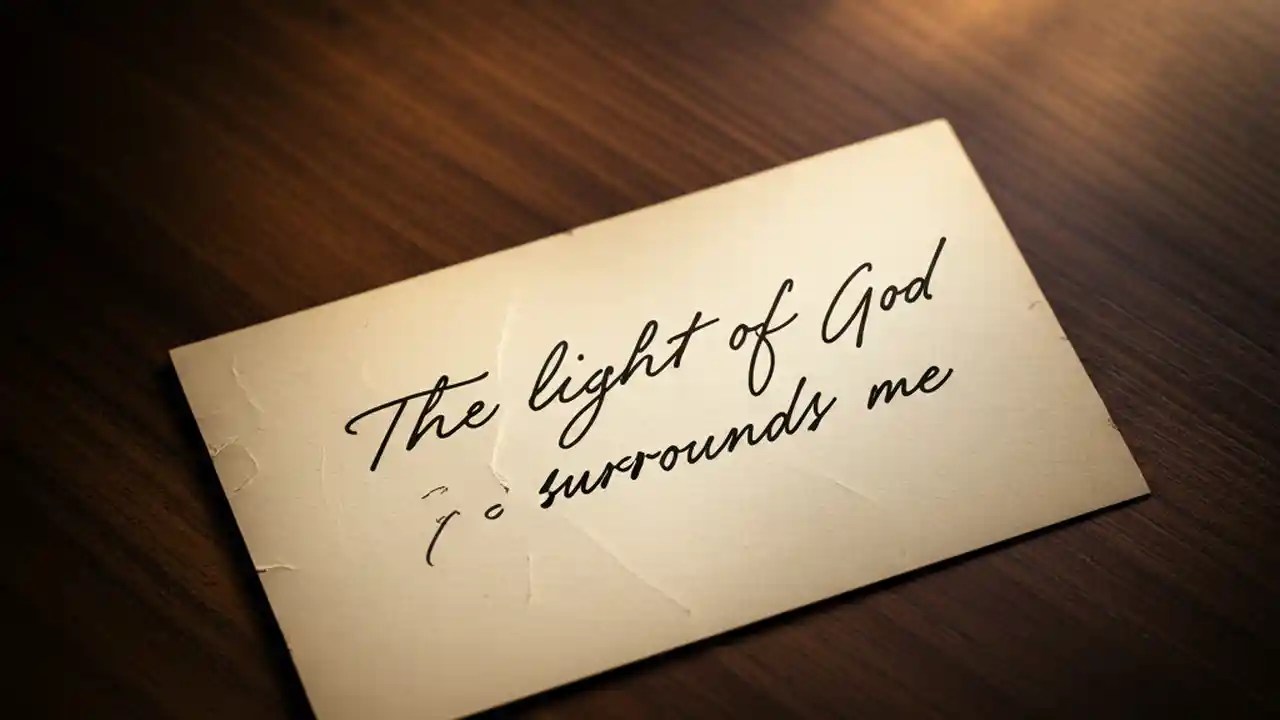 The light of God
surrounds me